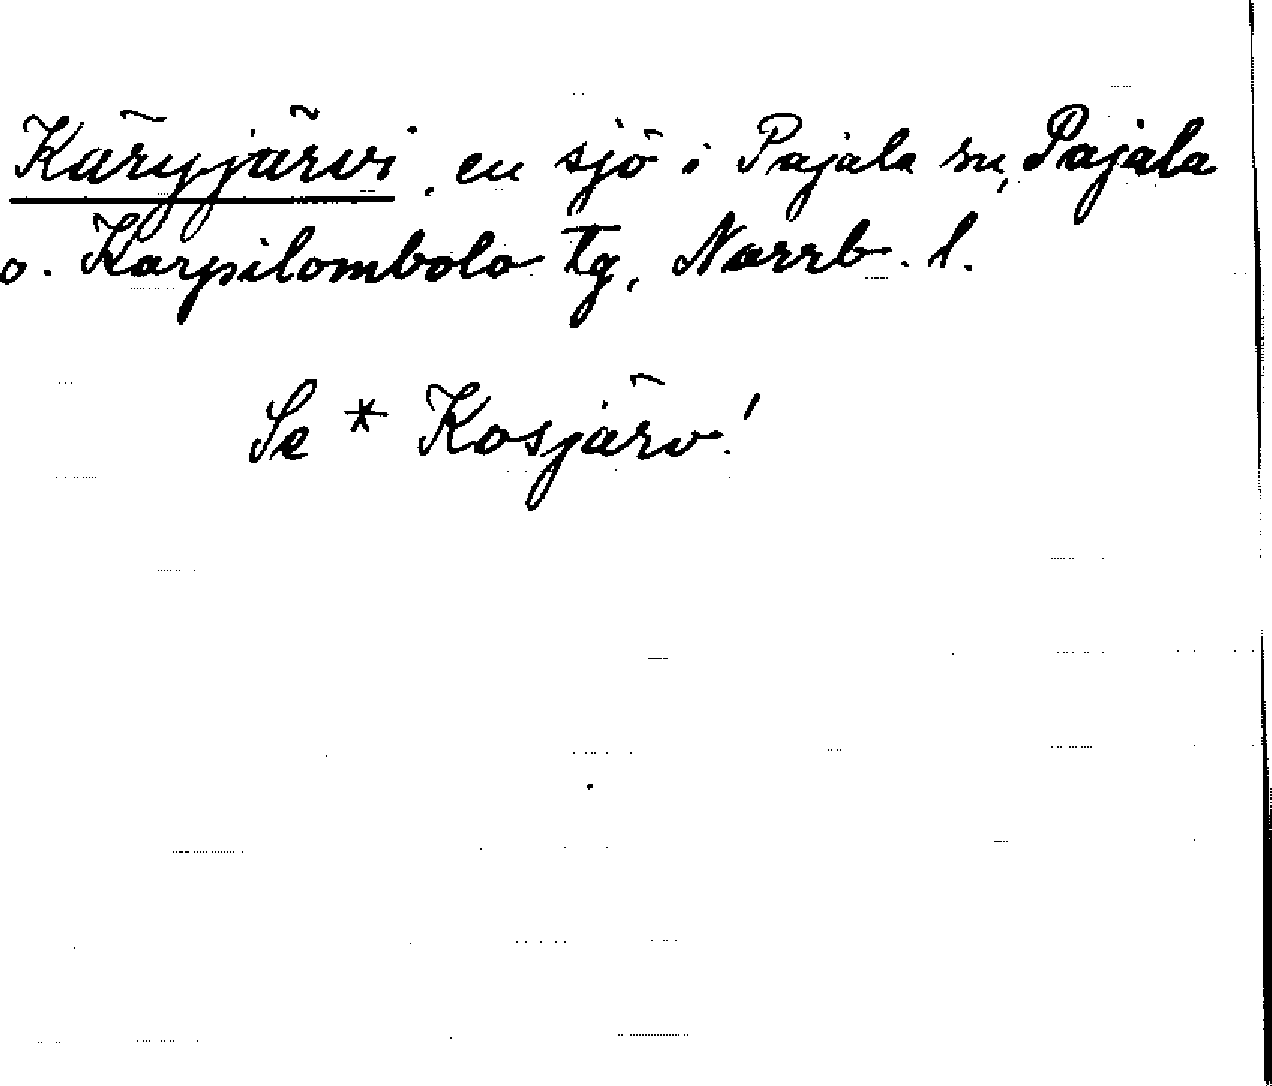 Käryjärvi, en sjö i Pajala sn, Pajala
o. Korpilombolo tg, Norrb. l.
Se * Kosjärv!